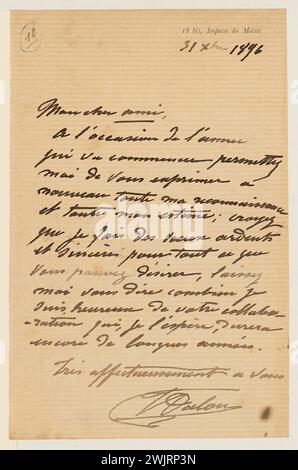 10
18 bis, Impasse du Maine
31 Xbre 1896
Mon cher ami,
A l'occasion de l'année
qui va commencer permettez
moi de vous exprimer à
nouveau toute ma reconnaissance
et toute mon estime; croyez
que je fais des vœux ardents
et sincères pour tout ce que
vous pouvez désirer, laissez
moi vous dire combien je
suis heureux de votre collabo-
ration qui, je l'espère, durera
encore de longues années.
Très affectueusement à vous
alamy
Image ID: 2WJRP3N
www.alamy.com